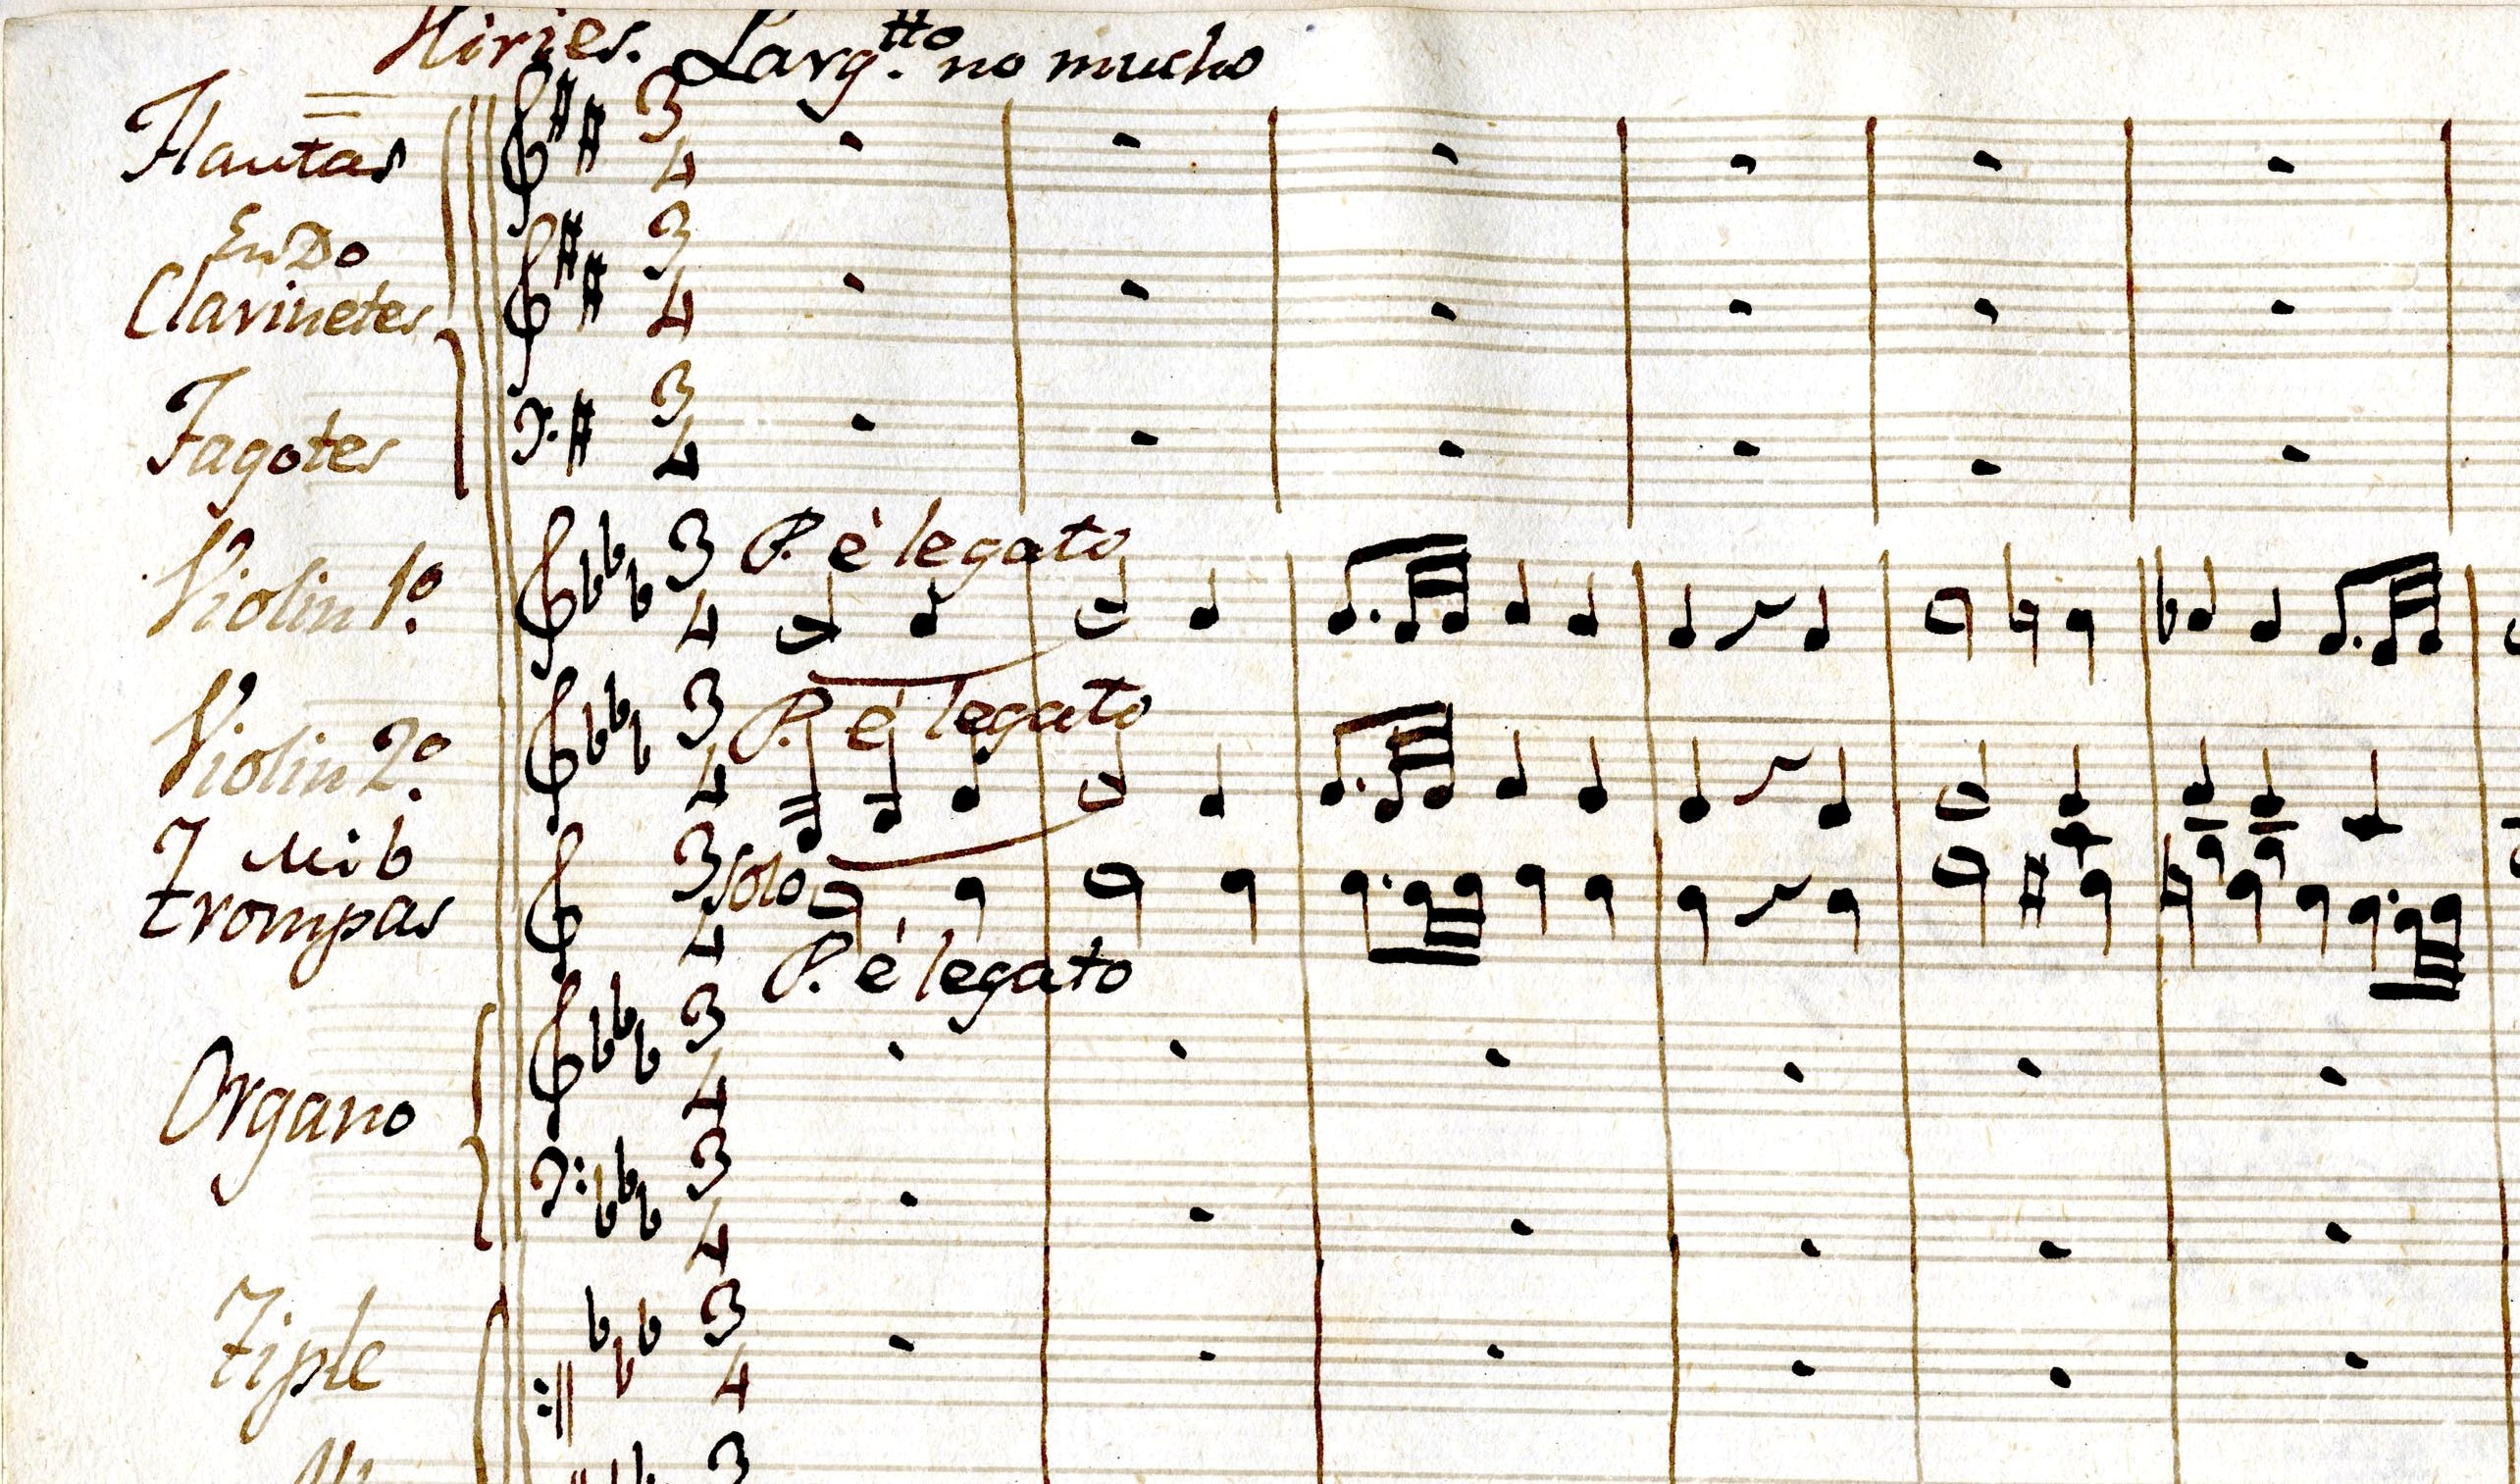 Kiries. Larg.tto no mucho
Flautas
3
4
En Do
Clarinetes
3
4
Fagotes
3
4
Violin 1º.
3
4
P. è legato
Violin 2º.
3
4
P. è legato
Mib
trompas
3
4
solo
P. è legato
Organo
3
4
3
4
Tiple
3
4
3